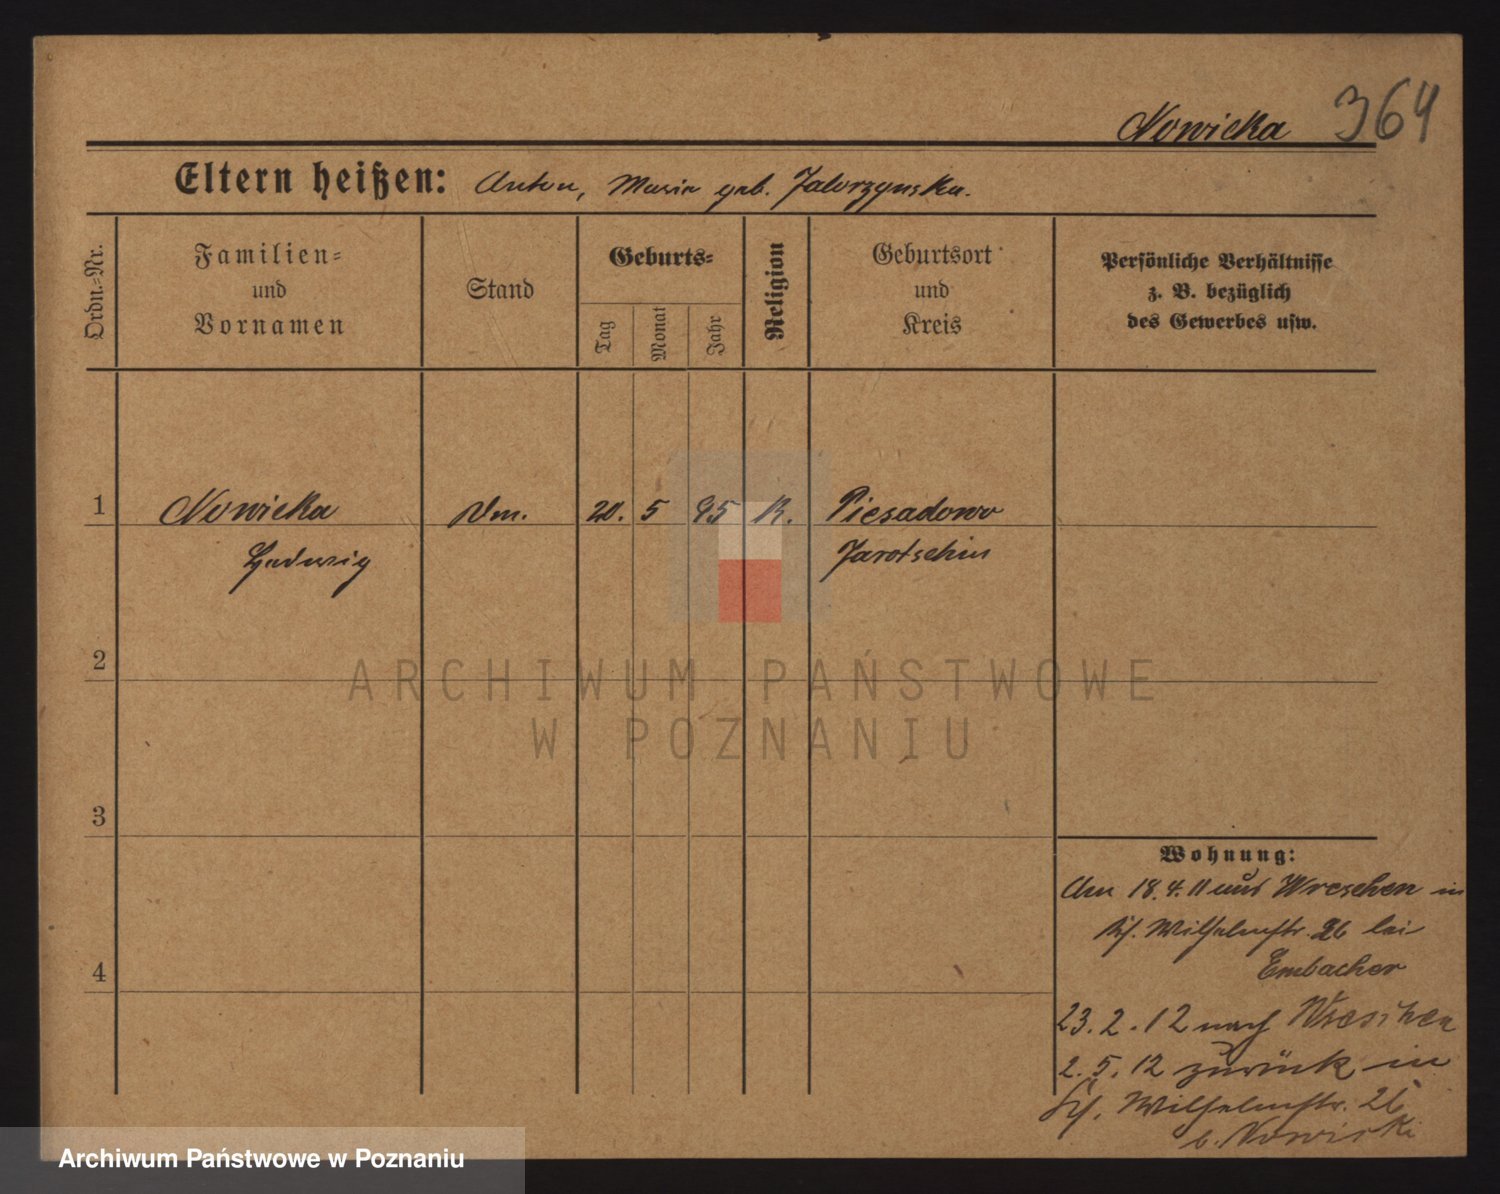 Nowicka 364
Eltern heißen: Anton, Maria geb. Jaborzynska.
Ordn.-Nr.
Familien-
und
Vornamen
Stand
Geburts-
Tag
Monat
Jahr
Religion
Geburtsort
und
Kreis
Persönliche Verhältnisse
z. B. bezüglich
des Gewerbes usw.
1 Nowicka 20. 5 95 K. Piesadowo
Hedwig Jarotschin
2
3
4
Wohnung:
Am 18.4.11 aus Wreschen in
Wilhelmstr. 26 bei
Embacher
23.2.12 nach Wreschen
2.5.12 zurück in
Wilhelmstr. 26
b. Nowicki
ARCHIWUM PAŃSTWOWE
W POZNANIU
Archiwum Państwowe w Poznaniu